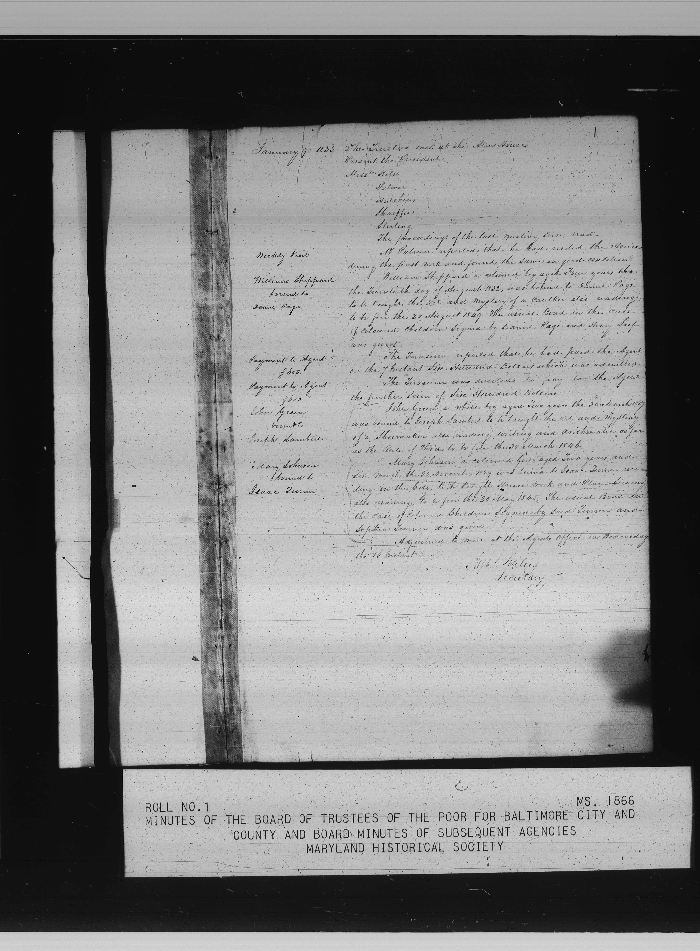 January 9 1833 The Trustees met at the Alms House
Present the President
Messrs
Palmer
Hutchins
Shaeffer
Sterling
The proceedings of the last meeting were read
Weekly Visit Mr Palmer reported that he had visited the House
during the past week and found the same in good condition
William Sheppard William Sheppard a coloured boy aged Four years the
bound to
Daniel Page the Twentieth day of August 1832, was bound to Daniel Page
to be taught the Art and Mystery of a also reading
to be free the 20 August 1849. The usual Bond in the case
of Coloured Children Signed by Daniel Page and
was given
Payment to Agent The Treasurer reported that he had paid the Agent
$600. on the 7 Instant Six Hundred Dollars which was
Payment to Agent The Treasurer was directed to pay to the Agent
$600 the further sum of Six Hundred Dollars
John Green John Green a white boy aged Two years the
bound to was bound to Joseph to be taught the Art and Mystery
Joseph of a Shoemaker also reading, writing and Arithmetic as far
as the Rule of Three to be free the March 1846
Mary Johnson Mary Johnson a coloured Girl aged Two years and
bound to Six months the was bound to Isaac
Isaac to be taught House work and Plain Sewing
also reading to be free the 22 May 1846. The usual Bond in
the case of Coloured Children Signed by said and
was given
Adjourned to meet at the Agents Office on Wednesday
the 16 Instant
Secretary
ROLL NO.1 MS. 1866
MINUTES OF THE BOARD OF TRUSTEES OF THE POOR FOR BALTIMORE CITY AND
COUNTY AND BOARD MINUTES OF SUBSEQUENT AGENCIES
MARYLAND HISTORICAL SOCIETY